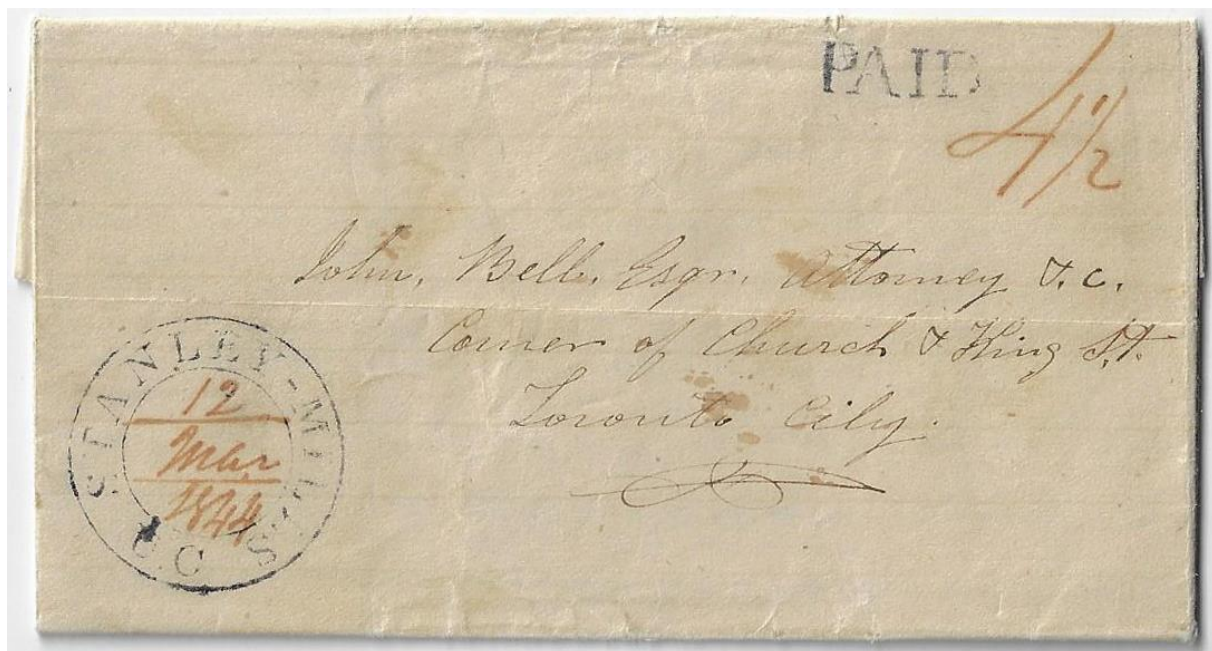 PAID
4 1/2
John, Bell, Esqr. Attorney &.c.
Corner of Church & King St.
Toronto City.
STANLEY-MILLS
12
Mar
1844
U.C